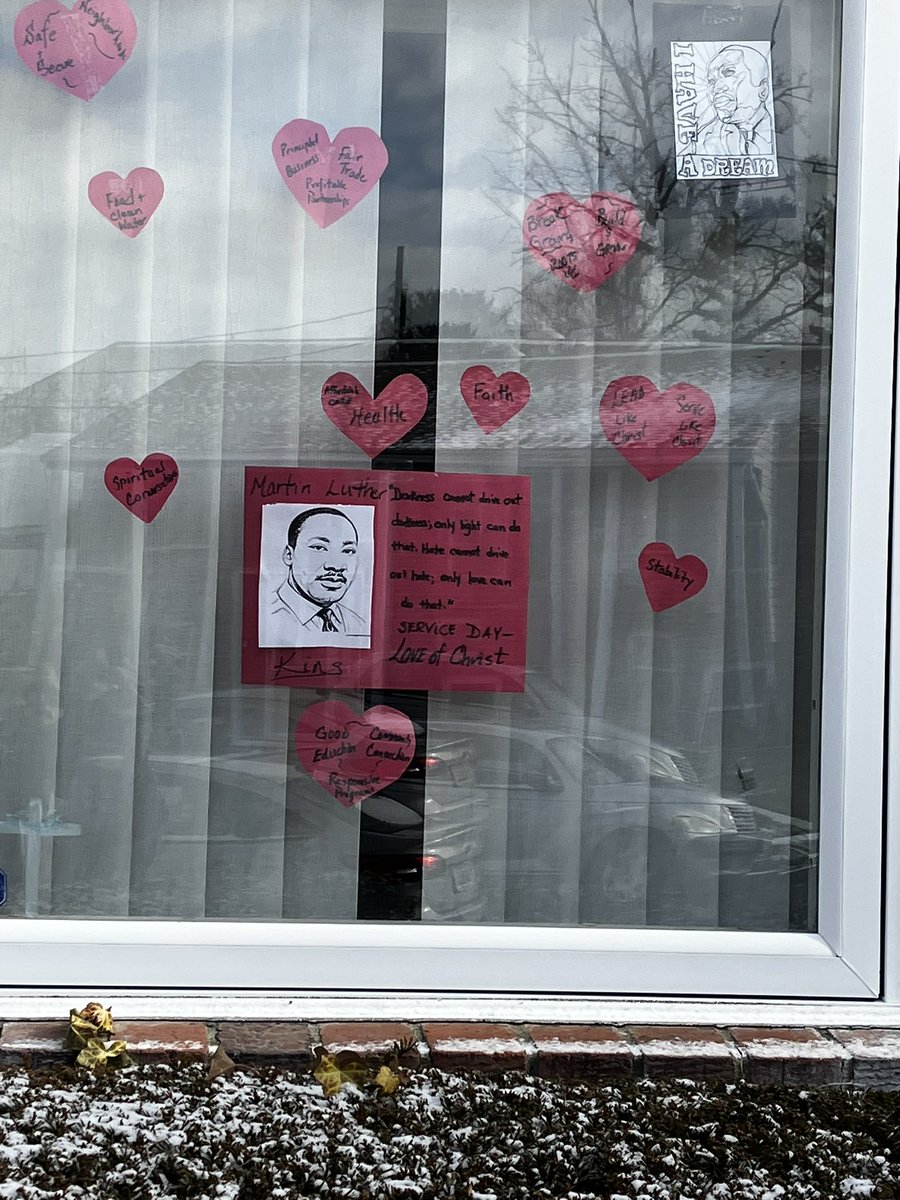 Safe
&
Secure
Neighborhoods
I HAVE
A DREAM
Principled
Business
Fair
Trade
Profitable
Partnerships
Food +
clean
Water
Break
Ground
Build
&
Grow
Affordable
Care
Health
Faith
LEAD
Like
Christ
Serve
Like
Christ
Spiritual
Conversations
Martin Luther
King
"Darkness cannot drive out
darkness; only light can do
that. Hate cannot drive
out hate; only love can
do that."
SERVICE DAY—
LOVE of Christ
Stability
Good
Education
Community
Connection
Responsive
Programs